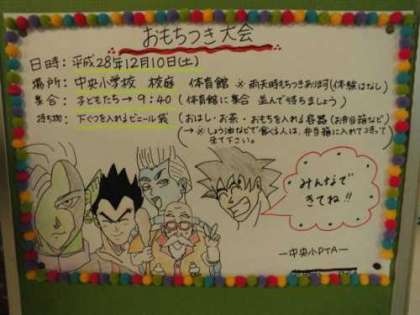 おもちつき大会
日時：平成28年12月10日(土)
場所：中央小学校 校庭 体育館 ※雨天時もちつきあり(体験はなし)
集合：子どもたち→9:40(体育館に集合 並んで待ちましょう)
持ち物：下ぐつを入れるビニール袋(おはし・お茶・おもちを入れる容器(お弁当箱など)
(→※しょう油などで食べる人は、弁当箱に入れて
て下さい。
みんなで
きてね!!
ー中央小PTAー